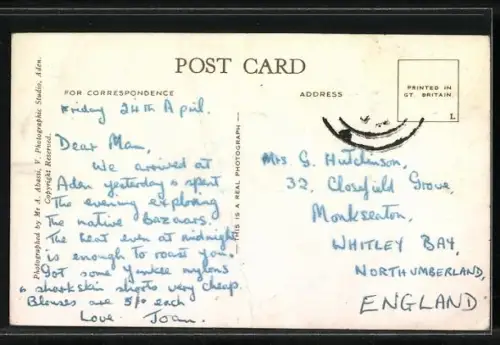 POST CARD
FOR CORRESPONDENCE
ADDRESS
PRINTED IN
GT. BRITAIN
L
Friday 24th April.
Dear Mam,
We arrived at
Aden yesterday & spent
the evening exploring
the native Bazaars.
The heat even at midnight
is enough to roast you.
Got some Yankee nylons
& sharkskin shorts very cheap.
Blouses are 5/- each
Love Joan.
Mrs G. Hutchinson,
32, Closefield Grove,
Monkseaton,
WHITLEY BAY,
NORTHUMBERLAND,
ENGLAND
THIS IS A REAL PHOTOGRAPH
Photographed by Mr A. Abassi, V. Photographic Studio, Aden.
Copyright Reserved.